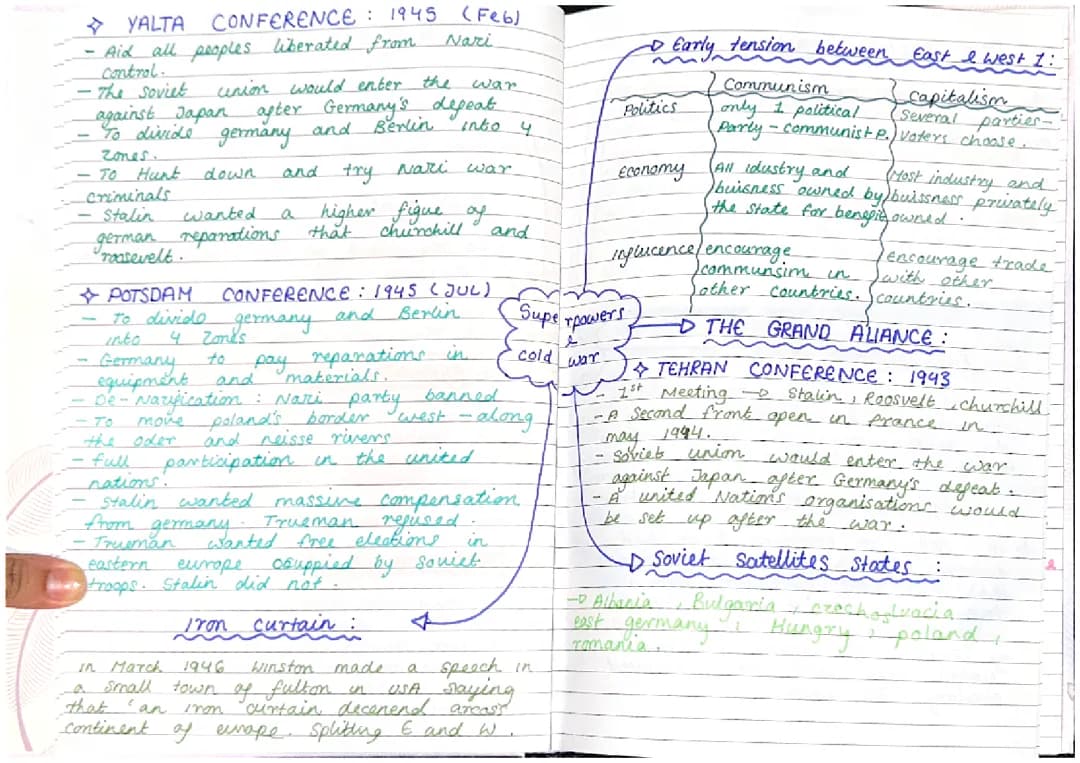 ✧ YALTA CONFERENCE : 1945 (Feb)
- Aid all peoples liberated from Nazi
control.
- The Soviet union would enter the war
against Japan after Germany's defeat
- To divide germany and Berlin into 4
zones.
- To Hunt down and try Nazi war
criminals
- Stalin wanted a higher figue of
german reparations that churchill and
roosevelt.
✧ POTSDAM CONFERENCE : 1945 (JUL)
- To divide germany and Berlin
into 4 zones
- Germany to pay reparations in
equipment and materials.
- De-Nazification : Nazi party banned
- To move poland's border west - along
the oder and neisse rivers
- full participation in the united
nations.
- Stalin wanted massive compensation
from germany. Trueman refused.
- Trueman wanted free elections in
eastern europe osuppied by soviet
troops. Stalin did not.
Iron curtain :
in March 1946 Winston made a speech in
a small town of fulton in USA saying
that 'an iron curtain decenend arcoss
continent of europe. Splitting E and W.
Superpowers
&
cold war
Early tension between East & West 1:
Communism Capitalism
Politics only 1 political Several parties-
Party - communist P. voters choose.
Economy All idustry and Most industry and
buisness owned by buissness privately
the state for benefit owned.
Influcence encourage encourage trade
communsim in with other
other countries. countries.
THE GRAND ALIANCE :
✧ TEHRAN CONFERENCE : 1943
- 1st Meeting → Stalin, Roosvelt, churchill
- A second front open in france in
may 1944.
- Soviet union would enter the war
against Japan after Germany's defeat.
- A united Nations organisations would
be set up after the war.
Soviet Satellites states :
→ Albania, Bulgaria, czechoslvacia
east germany, Hungry, poland,
romania.